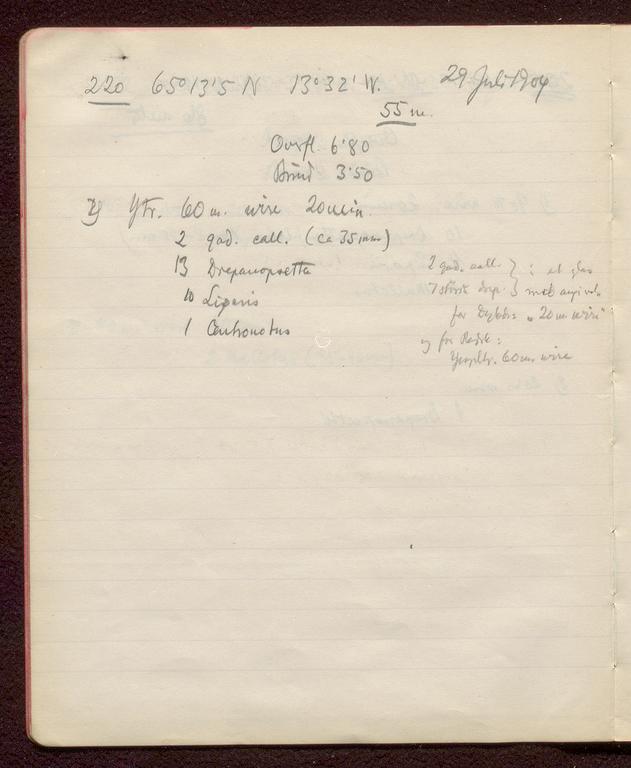 220 65°13'5 N 13°32' W. 29 Juli 1904
55 m.
Overfl. 6.80
Bund 3.50
Ytr. 60 m. wire 20 min.
2 gad. call. (ca 35 mm)
13 Drepanopsetta
10 Liparis
1 Centronotus
2 gad. call. } : et glas
7 störst drep. } med
for Dybde: "20 m. wire"
og for Redsk:
Yngeltr. 60 m. wire